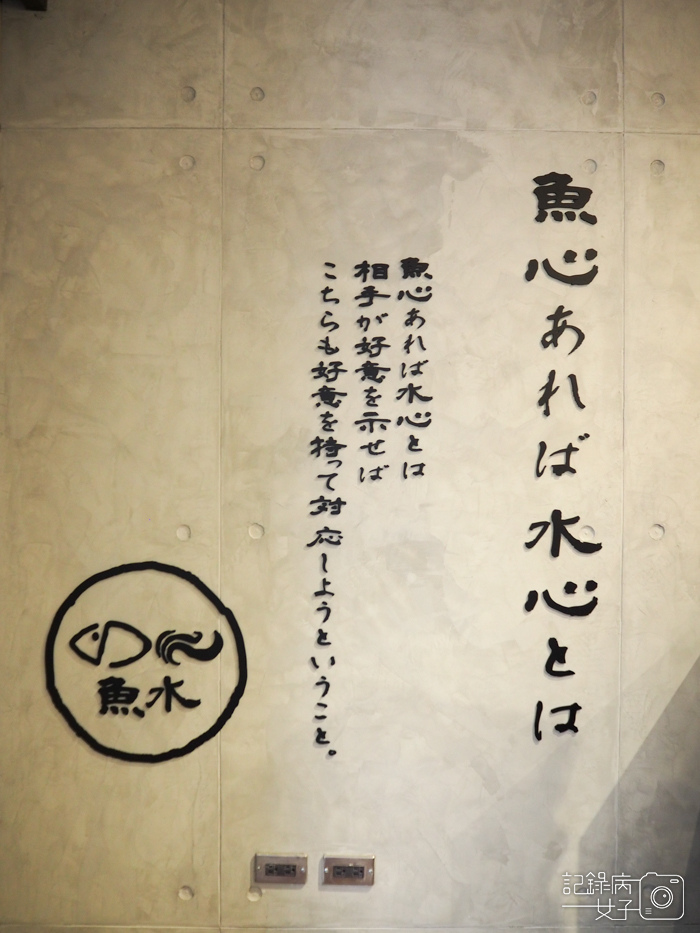 魚心あれば水心とは
魚心あれば水心とは
相手が好意を示せば
こちらも好意を持って対応しようということ。
魚水
記錄病
女子